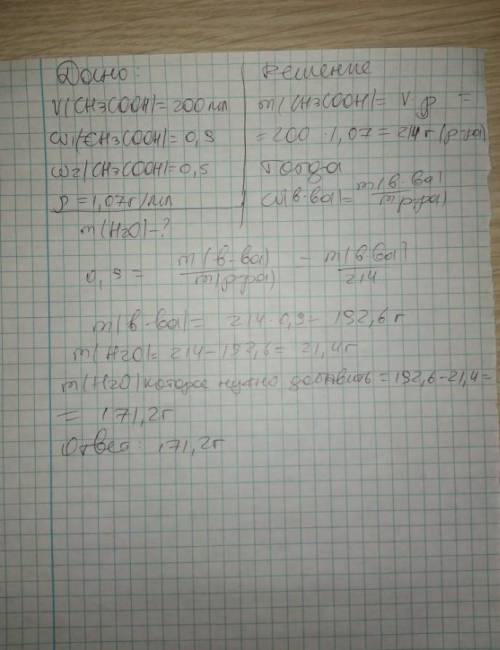 Дано:
Решение
V(CH3COOH)=200мл
m(CH3COOH)= V·ρ =
w1(CH3COOH)=0,9
=200·1,07=214г(р-ра)
w2(CH3COOH)=0,5
Тогда
ρ=1,07г/мл
w(в-ва)= m(в-ва)/m(р-ра)
m(H2O)-?
0,9= m(в-ва)/m(р-ра) = m(в-ва)/214
m(в-ва)= 214·0,9= 192,6г
m(H2O)=214-192,6= 21,4г
m(H2O) которое нужно добавить=192,6-21,4=
= 171,2г
Ответ: 171,2г